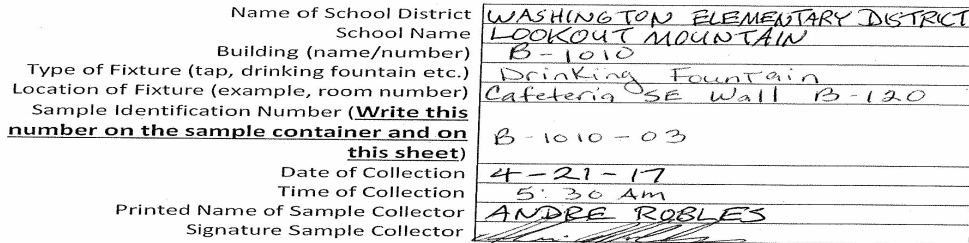 Name of School District WASHINGTON ELEMENTARY DISTRICT
School Name LOOKOUT MOUNTAIN
Building (name/number) B-1010
Type of Fixture (tap, drinking fountain etc.) Drinking Fountain
Location of Fixture (example, room number) Cafeteria SE Wall B-120
Sample Identification Number (Write this
number on the sample container and on
this sheet) B-1010-03
Date of Collection 4-21-17
Time of Collection 5:30 Am
Printed Name of Sample Collector ANDRE ROBLES
Signature Sample Collector